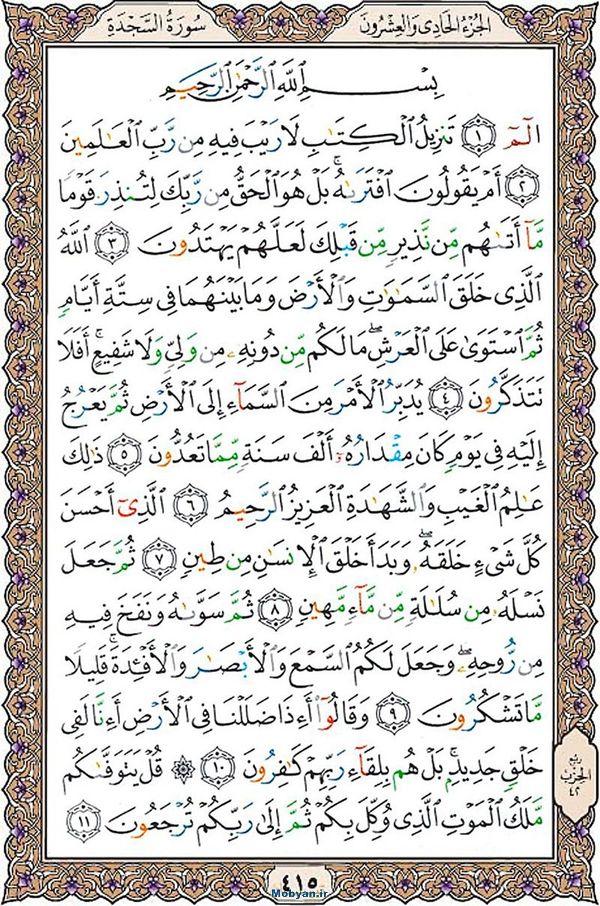 سُورَةُ السَّجْدَةِ الجُزْءُ الحَادِى وَالعِشْرُونَ
بِسْمِ ٱللَّهِ ٱلرَّحْمَٰنِ ٱلرَّحِيمِ
الٓمٓ ١ تَنزِيلُ ٱلْكِتَٰبِ لَا رَيْبَ فِيهِ مِن رَّبِّ ٱلْعَٰلَمِينَ
٢ أَمْ يَقُولُونَ ٱفْتَرَىٰهُ ۚ بَلْ هُوَ ٱلْحَقُّ مِن رَّبِّكَ لِتُنذِرَ قَوْمًا
مَّآ أَتَىٰهُم مِّن نَّذِيرٍ مِّن قَبْلِكَ لَعَلَّهُمْ يَهْتَدُونَ ٣ ٱللَّهُ
ٱلَّذِى خَلَقَ ٱلسَّمَٰوَٰتِ وَٱلْأَرْضَ وَمَا بَيْنَهُمَا فِى سِتَّةِ أَيَّامٍ
ثُمَّ ٱسْتَوَىٰ عَلَى ٱلْعَرْشِ ۖ مَا لَكُم مِّن دُونِهِۦ مِن وَلِىٍّ وَلَا شَفِيعٍ ۚ أَفَلَا
تَتَذَكَّرُونَ ٤ يُدَبِّرُ ٱلْأَمْرَ مِنَ ٱلسَّمَآءِ إِلَى ٱلْأَرْضِ ثُمَّ يَعْرُجُ
إِلَيْهِ فِى يَوْمٍ كَانَ مِقْدَارُهُۥٓ أَلْفَ سَنَةٍ مِّمَّا تَعُدُّونَ ٥ ذَٰلِكَ
عَٰلِمُ ٱلْغَيْبِ وَٱلشَّهَٰدَةِ ٱلْعَزِيزُ ٱلرَّحِيمُ ٦ ٱلَّذِىٓ أَحْسَنَ
كُلَّ شَىْءٍ خَلَقَهُۥ ۖ وَبَدَأَ خَلْقَ ٱلْإِنسَٰنِ مِن طِينٍ ٧ ثُمَّ جَعَلَ
نَسْلَهُۥ مِن سُلَٰلَةٍ مِّن مَّآءٍ مَّهِينٍ ٨ ثُمَّ سَوَّىٰهُ وَنَفَخَ فِيهِ
مِن رُّوحِهِۦ ۖ وَجَعَلَ لَكُمُ ٱلسَّمْعَ وَٱلْأَبْصَٰرَ وَٱلْأَفْـِٔدَةَ ۚ قَلِيلًا
مَّا تَشْكُرُونَ ٩ وَقَالُوٓا۟ أَءِذَا ضَلَلْنَا فِى ٱلْأَرْضِ أَءِنَّا لَفِى
خَلْقٍ جَدِيدٍۭ ۚ بَلْ هُم بِلِقَآءِ رَبِّهِمْ كَٰفِرُونَ ١٠ ۞ قُلْ يَتَوَفَّىٰكُم
مَّلَكُ ٱلْمَوْتِ ٱلَّذِى وُكِّلَ بِكُمْ ثُمَّ إِلَىٰ رَبِّكُمْ تُرْجَعُونَ ١١
ربع
الحزب
٤٢
٤١٥
Mobyan.ir